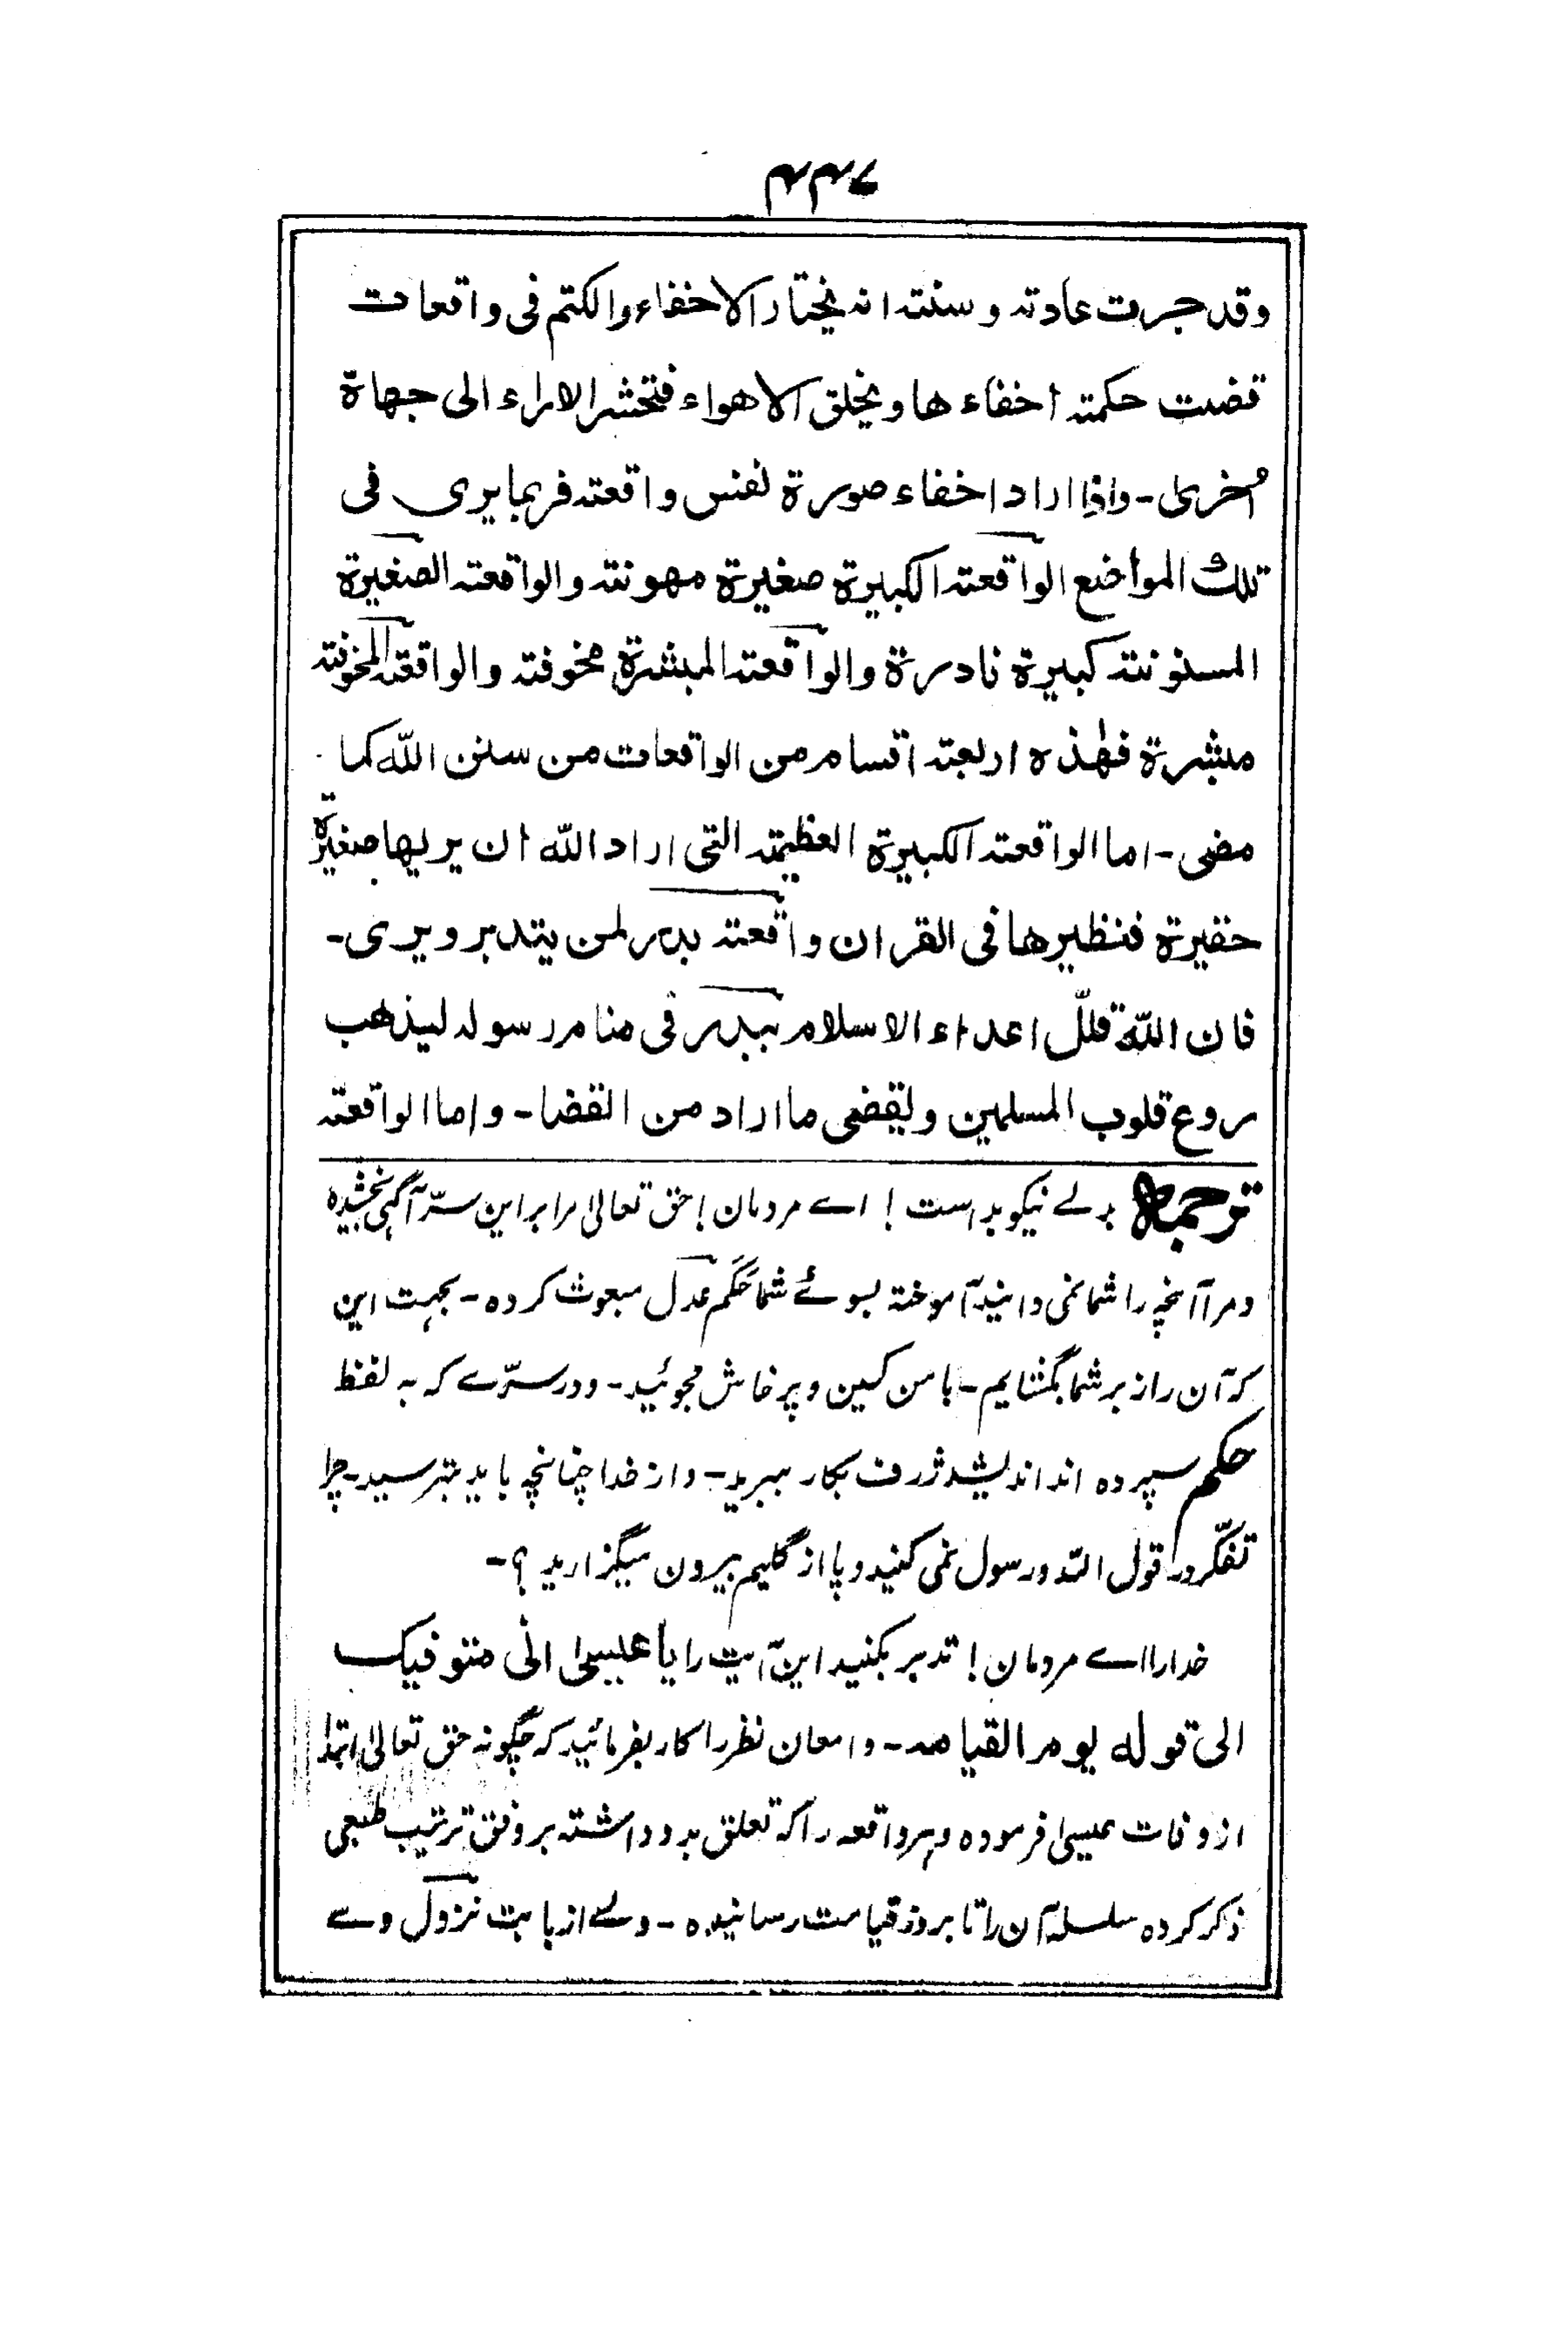 ۴۴۶
وقد جرت عادته وسنته انه يختار الاخفاء والكتم فى واقعات
قضت حكمته اخفاء ها ويخلق الاهواء فتحشر الاراء الى جهاة
اُخرىٰ - واذا اراد اخفاء صورة نفس واقعته فربما يرى فى
تلك المواضع الواقعته الكبيرة صغيرة مهونته والواقعته الصغيرة
المسنونته كبيرة نادرة والواقعته المبشرة مخوفته والواقعته المخوفته
مبشرة فهٰذه اربعته اقسام من الواقعات من سنن اللّٰه كما
مضى - اما الواقعته الكبيرة العظيمته التى اراد اللّٰه ان يريها صغيرة
حقيرة فنظيرها فى القران واقعته بدر لمن يتدبر ويرى -
فان اللّٰه قلّل اعداء الاسلام ببدر فى منام رسوله ليذهب
روع قلوب المسلمين وليقضى ما اراد من القضا - واما الواقعته
ترجمه بدلے نیکو بداست ! اے مردمان ! حق تعالیٰ مرا برابر این سرّ آگہی بخشیده
و مرا آنچہ را شما نمی دانید آموختہ بسوئے شما حَکَم عَدل مبعوث کرده - بجہت این
کہ آن راز بر شما بگشایم - با من کین و پرخاش مجوئید - و در سرّے کہ بہ لفظ
حکم سپرده اند اندیشہ ژرف بکار ببرید - و از خدا چنانچہ باید بترسید - چرا
تفکّر در قول اللہ و رسول نمی کنید و پا از گلیم بیرون میگزارید ؟ -
خدارا اے مردمان ! تدبر بکنید این آیت را یا عیسیٰ انی متوفیک
الی قوله یوم القیامہ - و امعان نظر را کار بفرمائید کہ چگونہ حق تعالیٰ ابتدا
از وفات عیسیٰ فرموده و ہر واقعہ را کہ تعلق بدو داشتہ بر وفق ترتیب طبعی
ذکر کرده سلسلہ آن را تا بروز قیامت رسانیده - ولے از بابت نزول وے